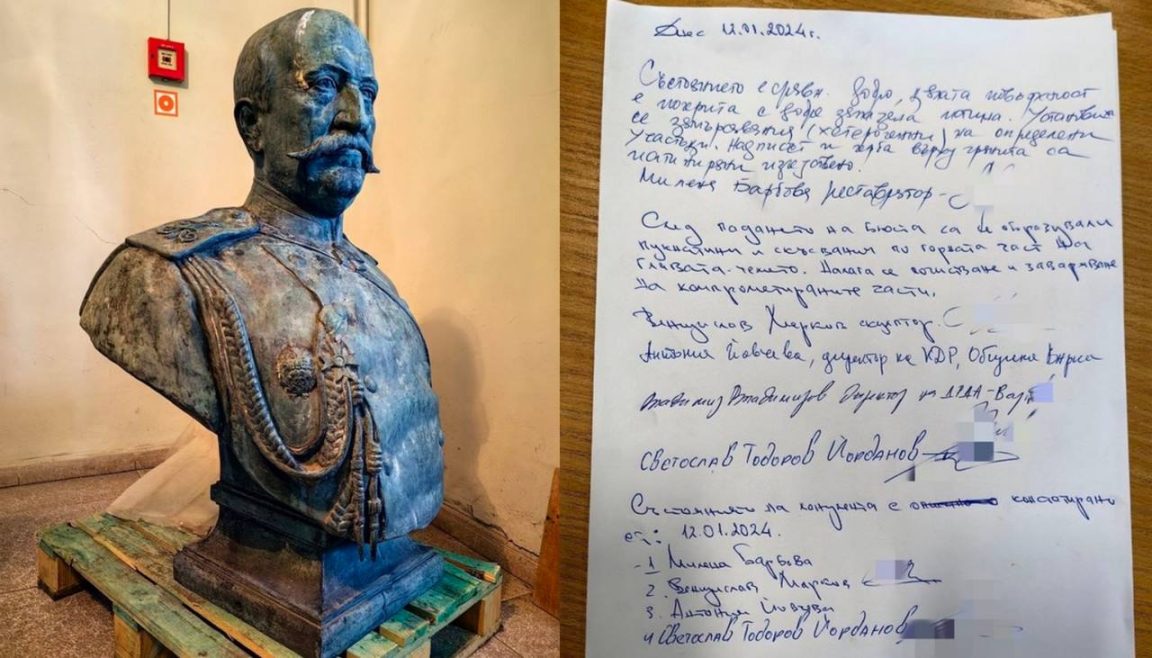 Днес 12.01.2024г.
Състоянието е сравн. добро, цялата повърхност
е покрита с добре запазена патина. Установяват
се замърсявания (хетерогенни) на определени
участъци. Надписът и херба върху гранита са
патинирани изкуствено.
Милена Барбова реставратор -
След падането на бюста са се образували
пукнатини и скъсвания по горната част на
главата-челото. Налага се почистване и заваряване
на компрометираните части.
Венцислав Марков скулптор.
Антония Йовчева, директор на КДР, Община Варна
Владимир Владимиров Директор на ДГДА-Варна
Светослав Тодоров Йорданов
Състоянието на монумента е констатирано
12.01.2024
1 Милена Барбова
2. Венцислав Марков
3. Антония Йовчева
4 Светослав Тодоров Йорданов